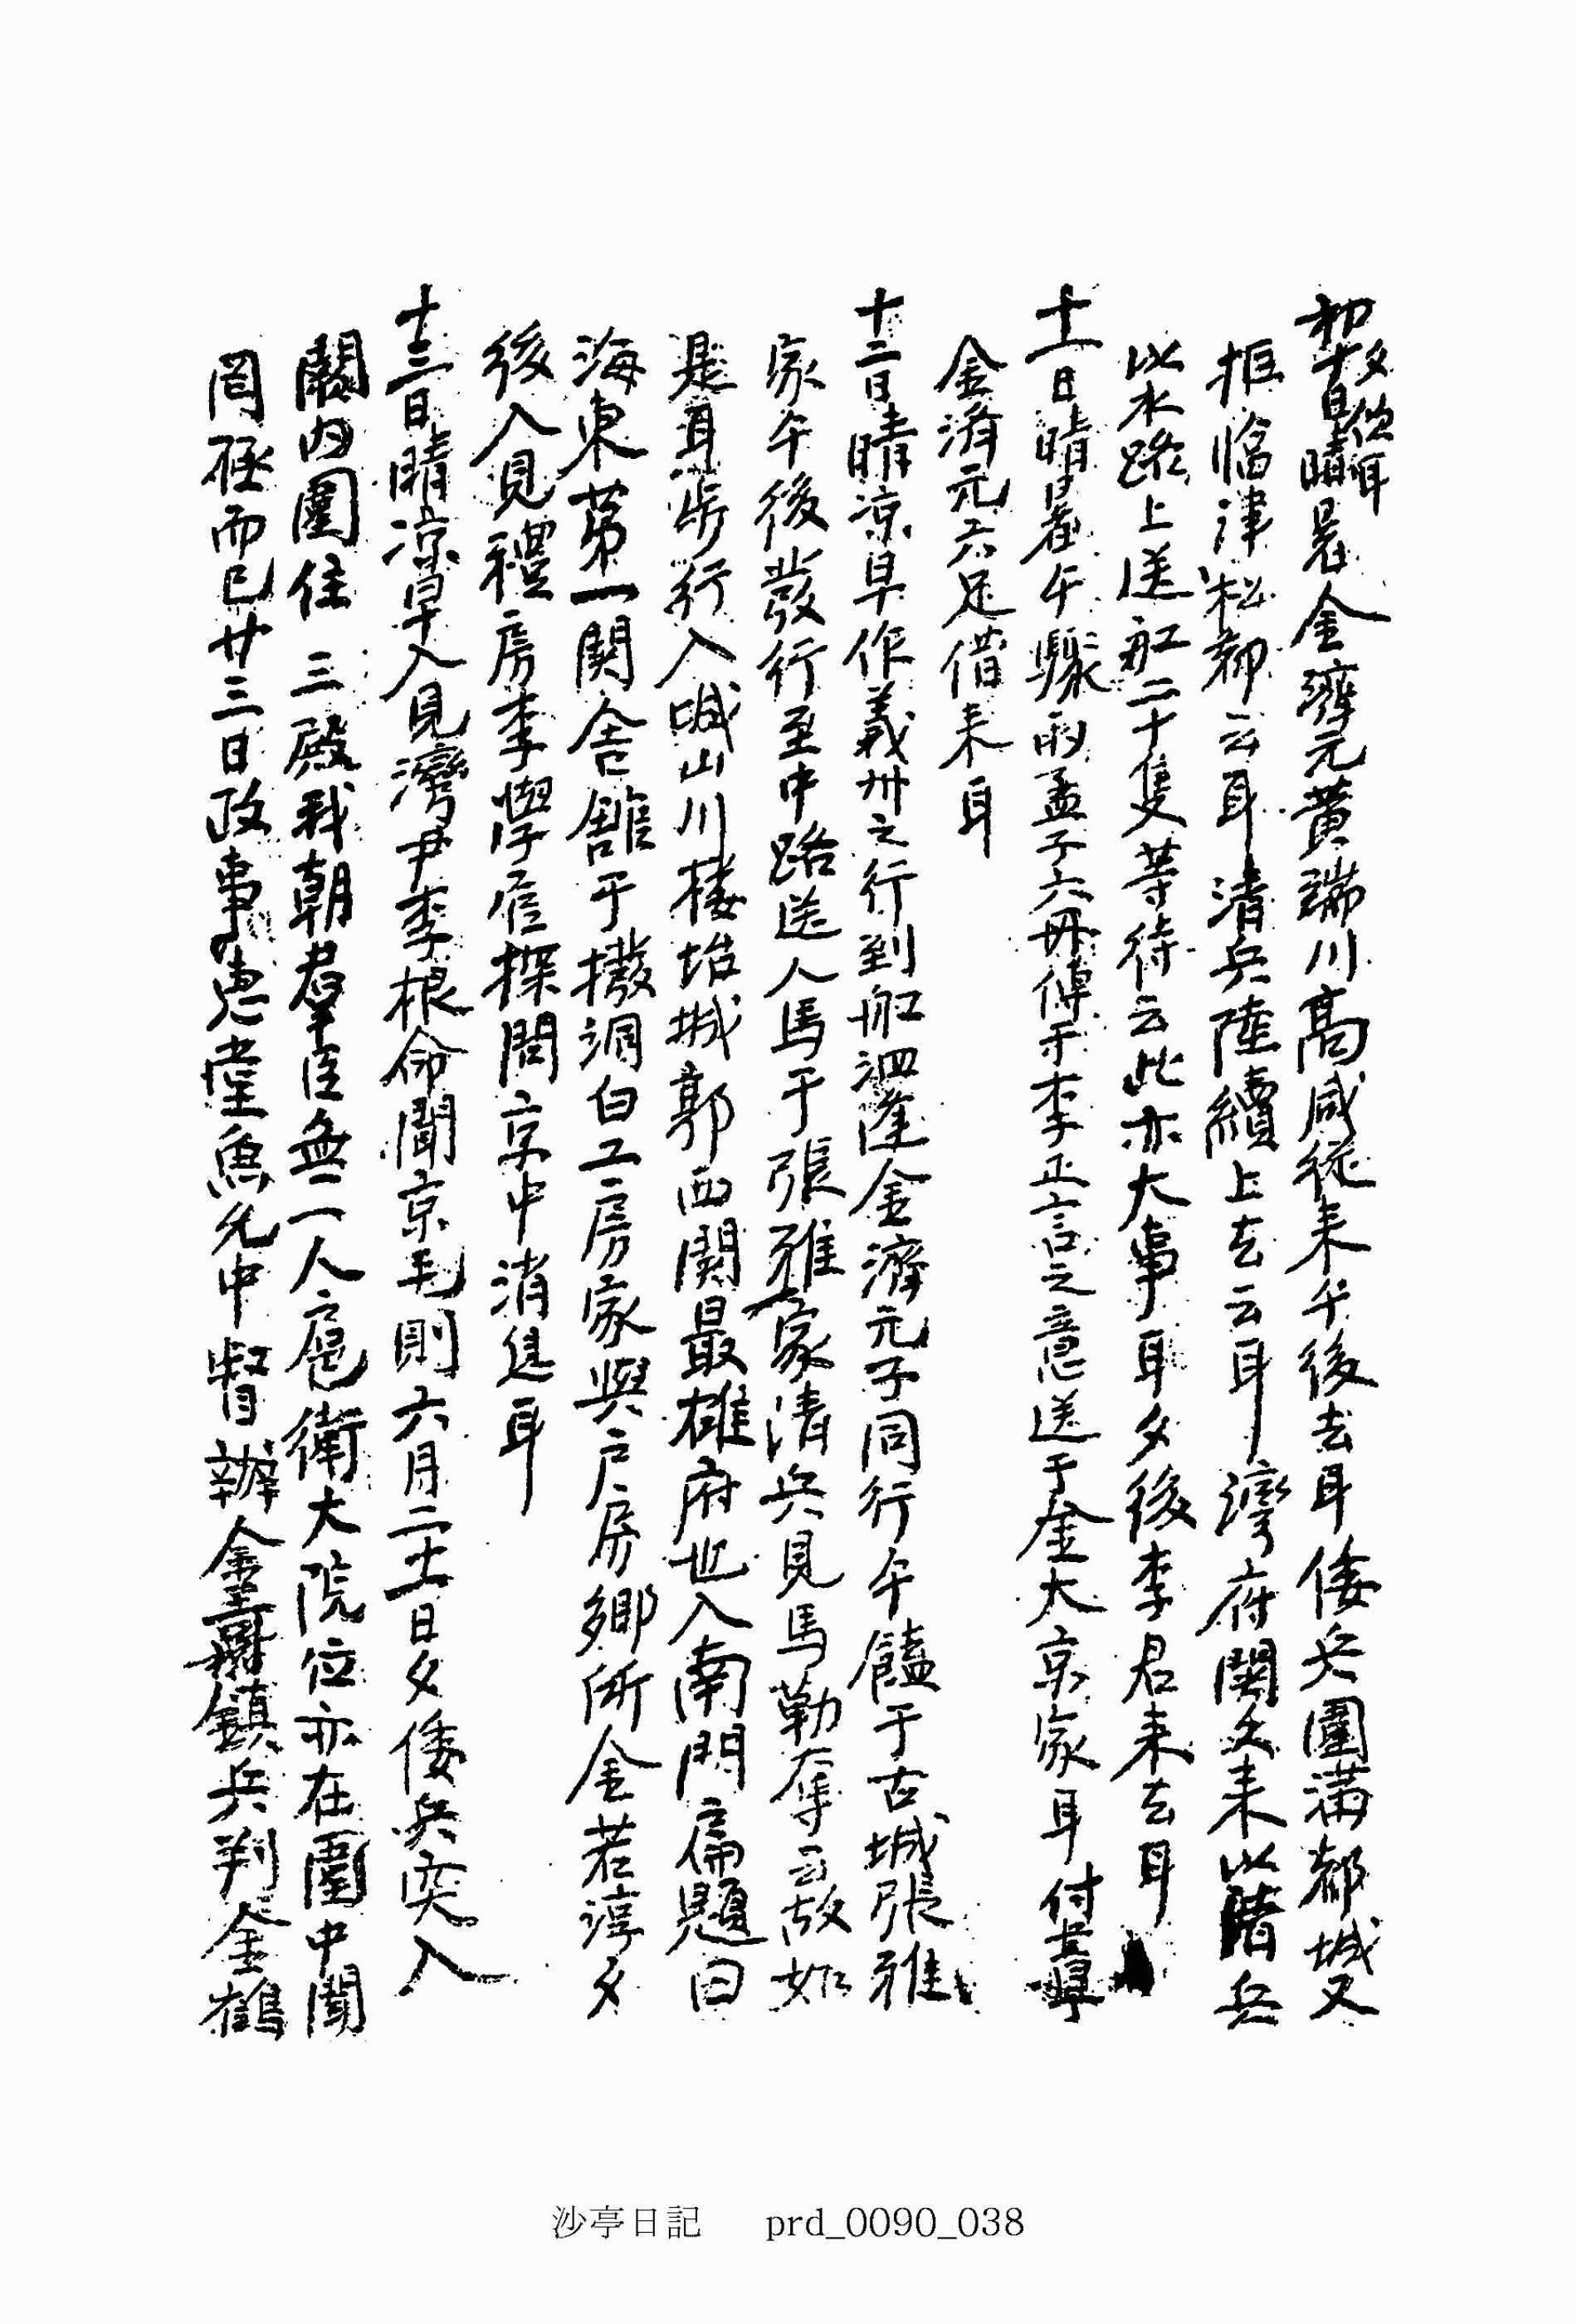 初十日晴暑金濟元黃瑞川高咸從來午後去耳倭兵圍滿都城又
拒臨津松都云耳清兵陸續上去云耳灣府関文來以清兵
以水路上送船二十隻等待云此亦大事耳夕後李君來去耳
十一日晴暑午驟雨孟子六冊傳于李正言之意送于金大京家耳付書
金濟元六足借來耳
十二日晴凉早作義州之行到船泗隆金濟元子同行午饐于古城張雅
家午後發行至中路送人馬于張雅家清兵見馬勒奪云故如
是耳步行入喊山川樓坮城郭西関最雄府也入南門扁題曰
海東苐一関舍舘于撥洞白工房家與戶房鄉所金若淳夕
後入見禮房李學詹探問京中消息耳
十三日晴凉早入見灣尹李根命聞京毛則六月二十一日夕倭兵突入
闕內圍住三殿我朝羣臣無一人扈衛大院位亦在圍中聞
罔極而已廿三日政事惠堂魚允中督辦金嘉鎮兵判金鶴
沙亭日記 prd_0090_038